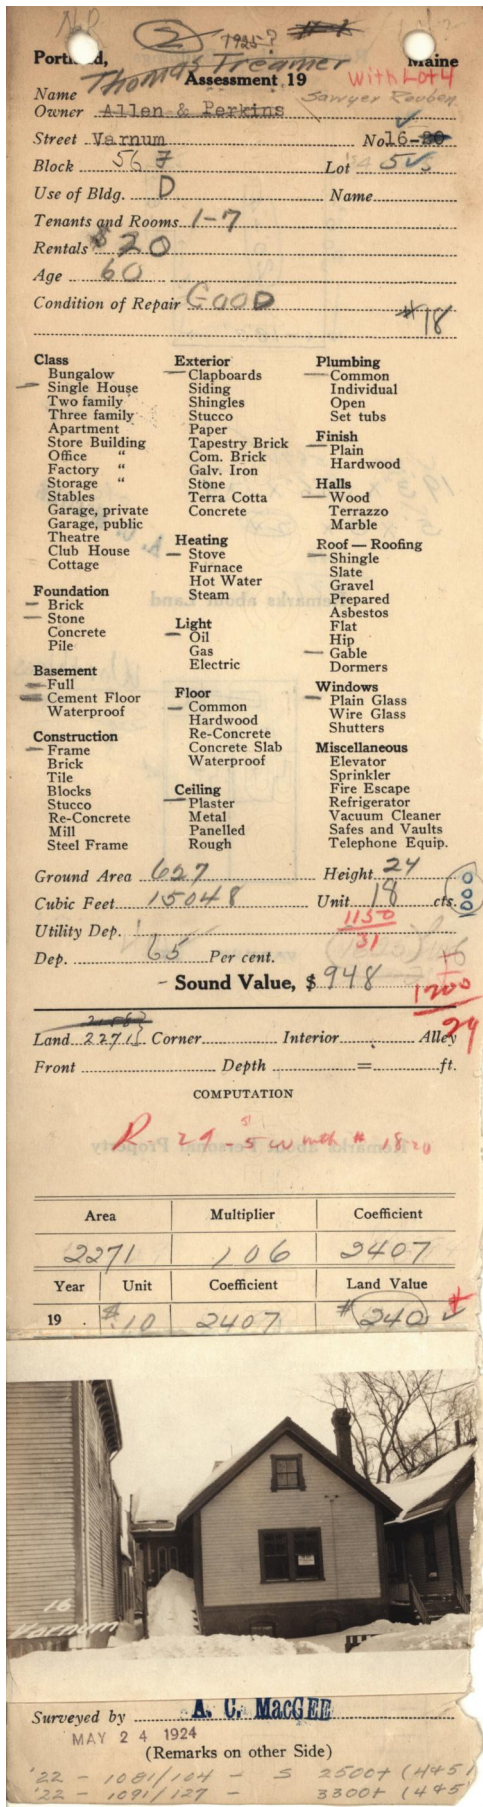 N.P. 2 1925?
Portland, Maine
Thomas Treamer
Assessment 19
With Lot 4
Name
Sawyer Reuben
Owner Allen & Perkins
Street Varnum No. 16-20
Block 56 F Lot 5
Use of Bldg. D Name
Tenants and Rooms 1-7
Rentals $20
Age 60
Condition of Repair GOOD
#18
Class
Bungalow
Single House
Two family
Three family
Apartment
Store Building
Office "
Factory "
Storage "
Stables
Garage, private
Garage, public
Theatre
Club House
Cottage
Foundation
Brick
Stone
Concrete
Pile
Basement
Full
Cement Floor
Waterproof
Construction
Frame
Brick
Tile
Blocks
Stucco
Re-Concrete
Mill
Steel Frame
Exterior
Clapboards
Siding
Shingles
Stucco
Paper
Tapestry Brick
Com. Brick
Galv. Iron
Stone
Terra Cotta
Concrete
Heating
Stove
Furnace
Hot Water
Steam
Light
Oil
Gas
Electric
Floor
Common
Hardwood
Re-Concrete
Concrete Slab
Waterproof
Ceiling
Plaster
Metal
Panelled
Rough
Plumbing
Common
Individual
Open
Set tubs
Finish
Plain
Hardwood
Halls
Wood
Terrazzo
Marble
Roof — Roofing
Shingle
Slate
Gravel
Prepared
Asbestos
Flat
Hip
Gable
Dormers
Windows
Plain Glass
Wire Glass
Shutters
Miscellaneous
Elevator
Sprinkler
Fire Escape
Refrigerator
Vacuum Cleaner
Safes and Vaults
Telephone Equip.
Ground Area 627 Height 24
Cubic Feet 15048 Unit 18 cts.
1150
Utility Dep. 31
Dep. 65 Per cent.
Sound Value, $ 948
1200
24
Land 2271 Corner Interior Alley
Front Depth = ft.
COMPUTATION
R 29
Area Multiplier Coefficient
2271 106 2407
Year Unit Coefficient Land Value
19 $.10 2407 $240
16
Varnum
Surveyed by A. C. MacGEE
MAY 24 1924
(Remarks on other Side)
'22 - 1081/104 - S 2500+ (4+5)
'22 - 1091/127 - 3300+ (4+5)